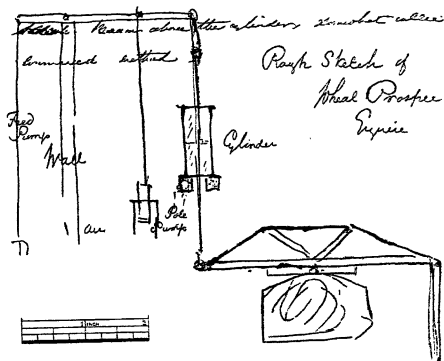 Beam above the cylinder, somewhat called
inverted
Rough Sketch of
Wheal Prosper
Engine
Feed
Pump
Wall
Cylinder
Pole
Pumps
air
1 INCH